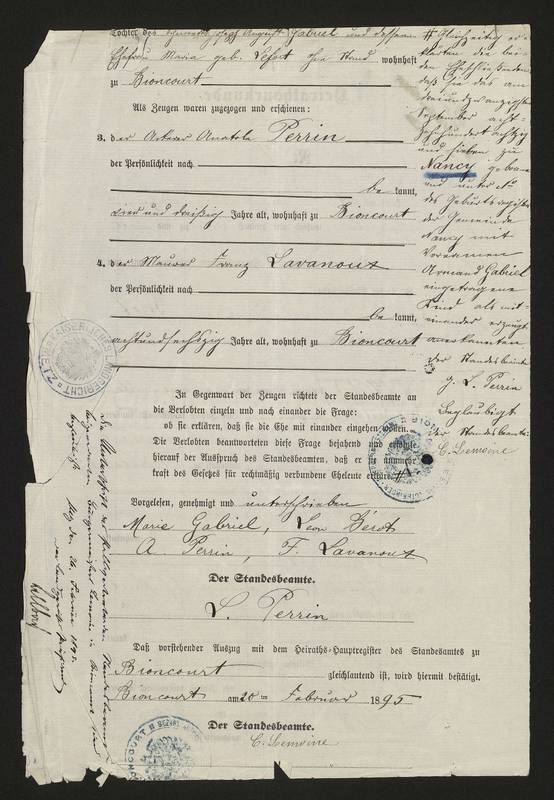 Tochter des Joseph August Gabriel und dessen
Ehefrau Maria geb. Lefort ohne Stand wohnhaft
zu Bioncourt
Als Zeugen waren zugezogen und erschienen:
3. der Ackerer Anatole Perrin
der Persönlichkeit nach
be kannt,
dreiunddreißig Jahre alt, wohnhaft zu Bioncourt
4. der Maurer Franz Lavanoux
der Persönlichkeit nach
be kannt,
achtundsechszig Jahre alt, wohnhaft zu Bioncourt
In Gegenwart der Zeugen richtete der Standesbeamte an
die Verlobten einzeln und nach einander die Frage:
ob sie erklären, daß sie die Ehe mit einander eingehen wollen.
Die Verlobten beantworteten diese Frage bejahend und erfolgte
hierauf der Ausspruch des Standesbeamten, daß er sie nunmehr
kraft des Gesetzes für rechtmäßig verbundene Eheleute erkläre. #
Vorgelesen, genehmigt und unterschrieben
Marie Gabriel, Leon Bérot
A. Perrin, F. Lavanoux
Der Standesbeamte.
L. Perrin
Daß vorstehender Auszug mit dem Heiraths-Hauptregister des Standesamtes zu
Bioncourt gleichlautend ist, wird hiermit bestätigt.
Bioncourt am 20 ten Februar 1895
Der Standesbeamte.
C. Lemoine
# Gleichzeitig er-
klärten die bei-
den Eheschließenden
daß sie das am
dreiundzwanzigsten
September acht-
zehnhundert achtzig
und sieben zu
Nancy geborene
und unter
des Geburtsregisters
der Gemeinde
Nancy mit
Vornamen
Armand Gabriel
eingetragene
Kind als mit-
einander erzeugt
anerkannten
der Standesbeamte
g. L. Perrin
Beglaubigt
der Standesbeamte:
C. Lemoine
KAISERLICHES LANDGERICHT
Die Unterschrift des
beglaubigt
Metz den 26. Februar 1895.
BIONCOURT